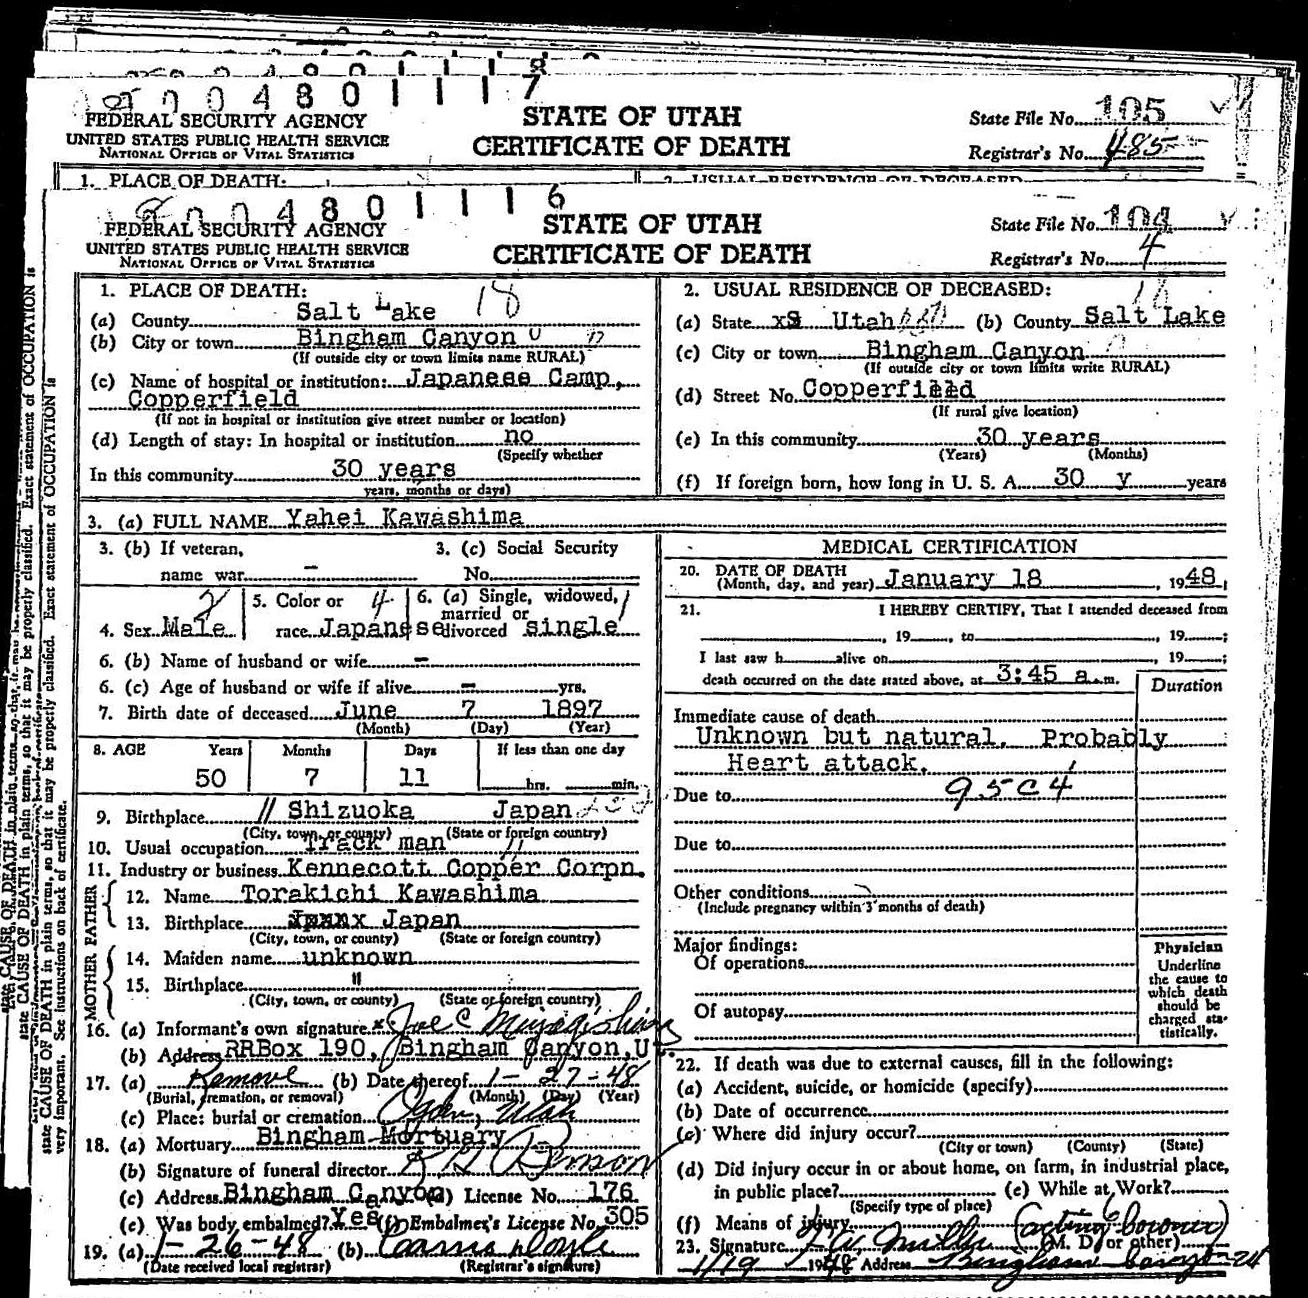 2 0 0 4 8 0 1 1 1 7
FEDERAL SECURITY AGENCY
UNITED STATES PUBLIC HEALTH SERVICE
NATIONAL OFFICE OF VITAL STATISTICS
STATE OF UTAH
CERTIFICATE OF DEATH
State File No. 105
Registrar's No. 485
1. PLACE OF DEATH:
2. USUAL RESIDENCE OF DECEASED
0 0 4 8 0 1 1 1 6
FEDERAL SECURITY AGENCY
UNITED STATES PUBLIC HEALTH SERVICE
NATIONAL OFFICE OF VITAL STATISTICS
STATE OF UTAH
CERTIFICATE OF DEATH
State File No. 104
Registrar's No. 4
1. PLACE OF DEATH: 18
(a) County Salt Lake
(b) City or town Bingham Canyon
(If outside city or town limits name RURAL)
(c) Name of hospital or institution: Japanese Camp,
Copperfield
(If not in hospital or institution give street number or location)
(d) Length of stay: In hospital or institution no
(Specify whether
In this community 30 years
years, months or days)
2. USUAL RESIDENCE OF DECEASED: 18
(a) State xS Utah (b) County Salt Lake
(c) City or town Bingham Canyon
(If outside city or town limits write RURAL)
(d) Street No. Copperfield
(If rural give location)
(e) In this community 30 years
(Years) (Months)
(f) If foreign born, how long in U. S. A. 30 y years
3. (a) FULL NAME Yahei Kawashima
3. (b) If veteran, 3. (c) Social Security
name war - No.
4. Sex Male 5. Color or race Japanese 4 6. (a) Single, widowed, married or divorced single 1
6. (b) Name of husband or wife -
6. (c) Age of husband or wife if alive - yrs.
7. Birth date of deceased June 7 1897
(Month) (Day) (Year)
8. AGE Years Months Days If less than one day
50 7 11 hrs. min.
9. Birthplace // Shizuoka Japan
(City, town, or county) (State or foreign country)
10. Usual occupation Track man
11. Industry or business Kennecott Copper Corpn.
FATHER
12. Name Torakichi Kawashima
13. Birthplace Japan
(City, town, or county) (State or foreign country)
MOTHER
14. Maiden name unknown
15. Birthplace "
(City, town, or county) (State or foreign country)
16. (a) Informant's own signature x Joe C Miyagishima
(b) Address RRBox 190, Bingham Canyon, Ut.
17. (a) Remove (b) Date thereof 1-27-48
(Burial, cremation, or removal) (Month) (Day) (Year)
(c) Place: burial or cremation Ogden, Utah
18. (a) Mortuary Bingham Mortuary
(b) Signature of funeral director
(c) Address Bingham Canyon (d) License No. 176
(e) Was body embalmed? Yes (f) Embalmer's License No. 305
19. (a) 1-26-48 (b)
(Date received local registrar) (Registrar's signature)
MEDICAL CERTIFICATION
20. DATE OF DEATH
(Month, day, and year) January 18, 1948;
21. I HEREBY CERTIFY, That I attended deceased from
, 19 , to , 19 ;
I last saw h alive on , 19 ;
death occurred on the date stated above, at 3:45 a.m.
Duration
Immediate cause of death
Unknown but natural. Probably
Heart attack.
Due to 95c4
Due to
Other conditions
(Include pregnancy within 3 months of death)
Major findings:
Of operations
Of autopsy
Physician
Underline
the cause to
which death
should be
charged sta-
tistically.
22. If death was due to external causes, fill in the following:
(a) Accident, suicide, or homicide (specify)
(b) Date of occurrence
(c) Where did injury occur?
(City or town) (County) (State)
(d) Did injury occur in or about home, on farm, in industrial place,
in public place? (e) While at Work?
(Specify type of place)
(f) Means of injury (acting Coroner)
23. Signature Miller (M. D. or other)
1/19 1948 Address Bingham Canyon
state CAUSE OF DEATH in plain terms, so that it may be properly classified. Exact statement of OCCUPATION is
very important. See instructions on back of certificate.